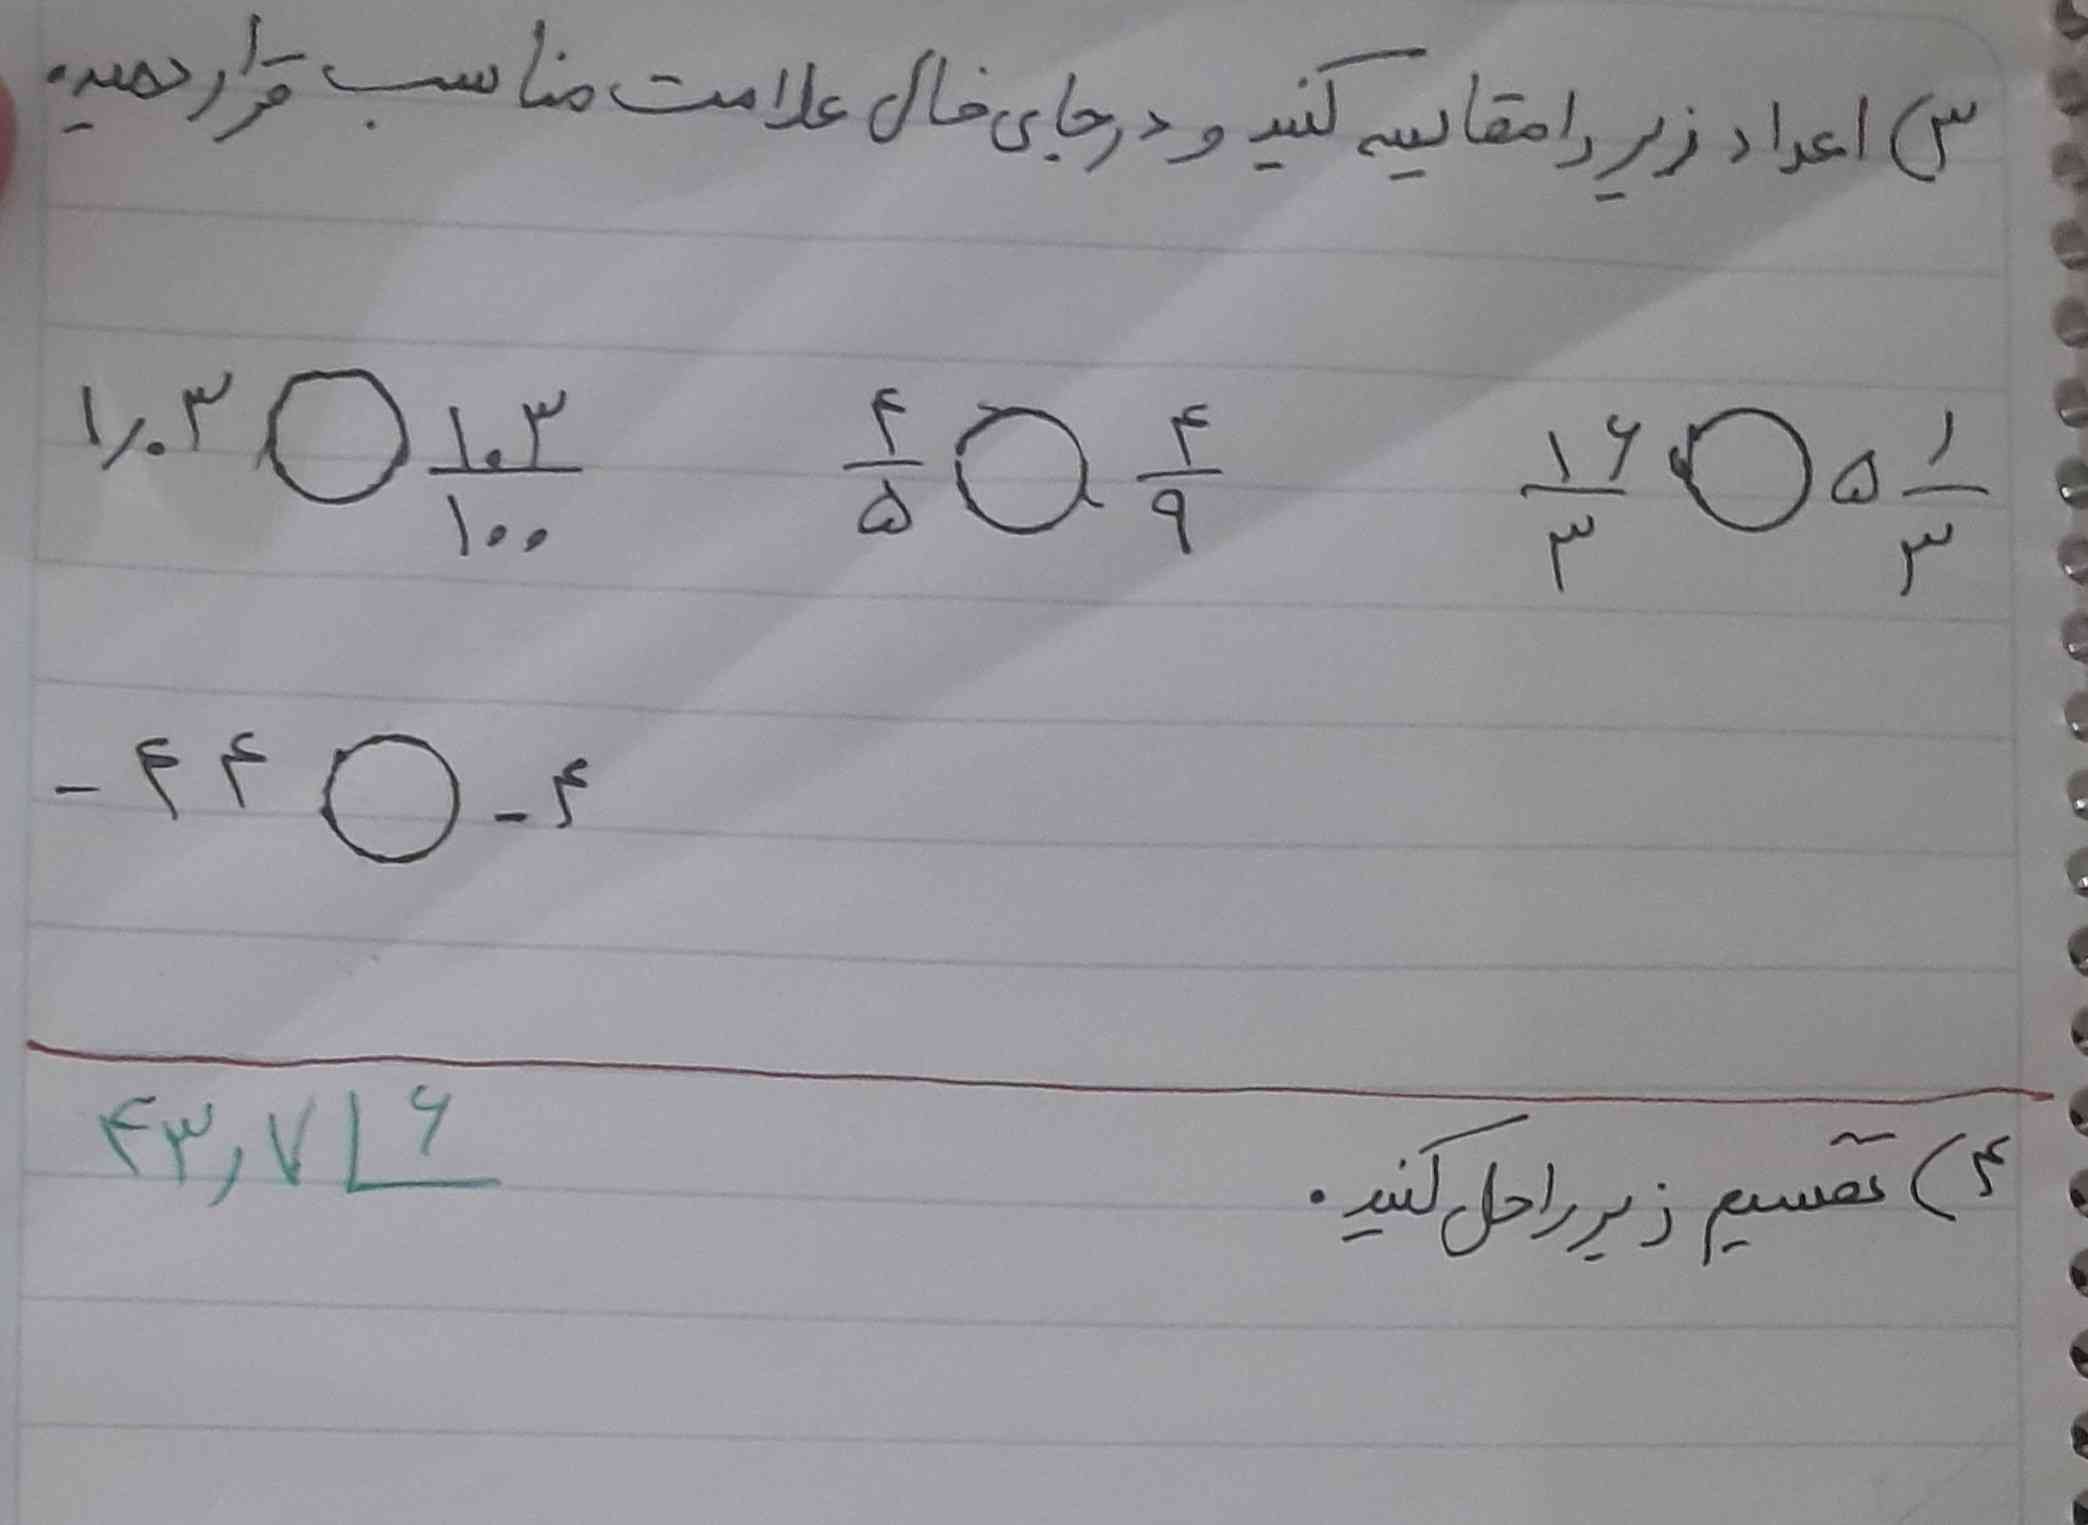 ۳) اعداد زیر را مقایسه کنید و در جای خالی علامت مناسب قرار دهید.
۱۶/۳ ○ ۵ ۱/۳
۴/۵ ○ ۴/۹
۱٫۰۳ ○ ۱۰۳/۱۰۰
-۴۴ ○ -۴
۴) تقسیم زیر را حل کنید.
۴۳٫۷ ۶